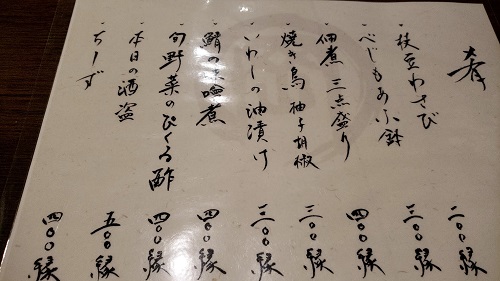 肴
・枝豆わさび 二〇〇縁
・べじもあ小鉢 三〇〇縁
・佃煮 三点盛り 四〇〇縁
・焼き鳥 柚子胡椒 三〇〇縁
・いわしの油漬け 三〇〇縁
・鯖の味噌煮 四〇〇縁
・旬野菜のぴくる酢 四〇〇縁
・本日の酒盗 五〇〇縁
・ちーず 四〇〇縁